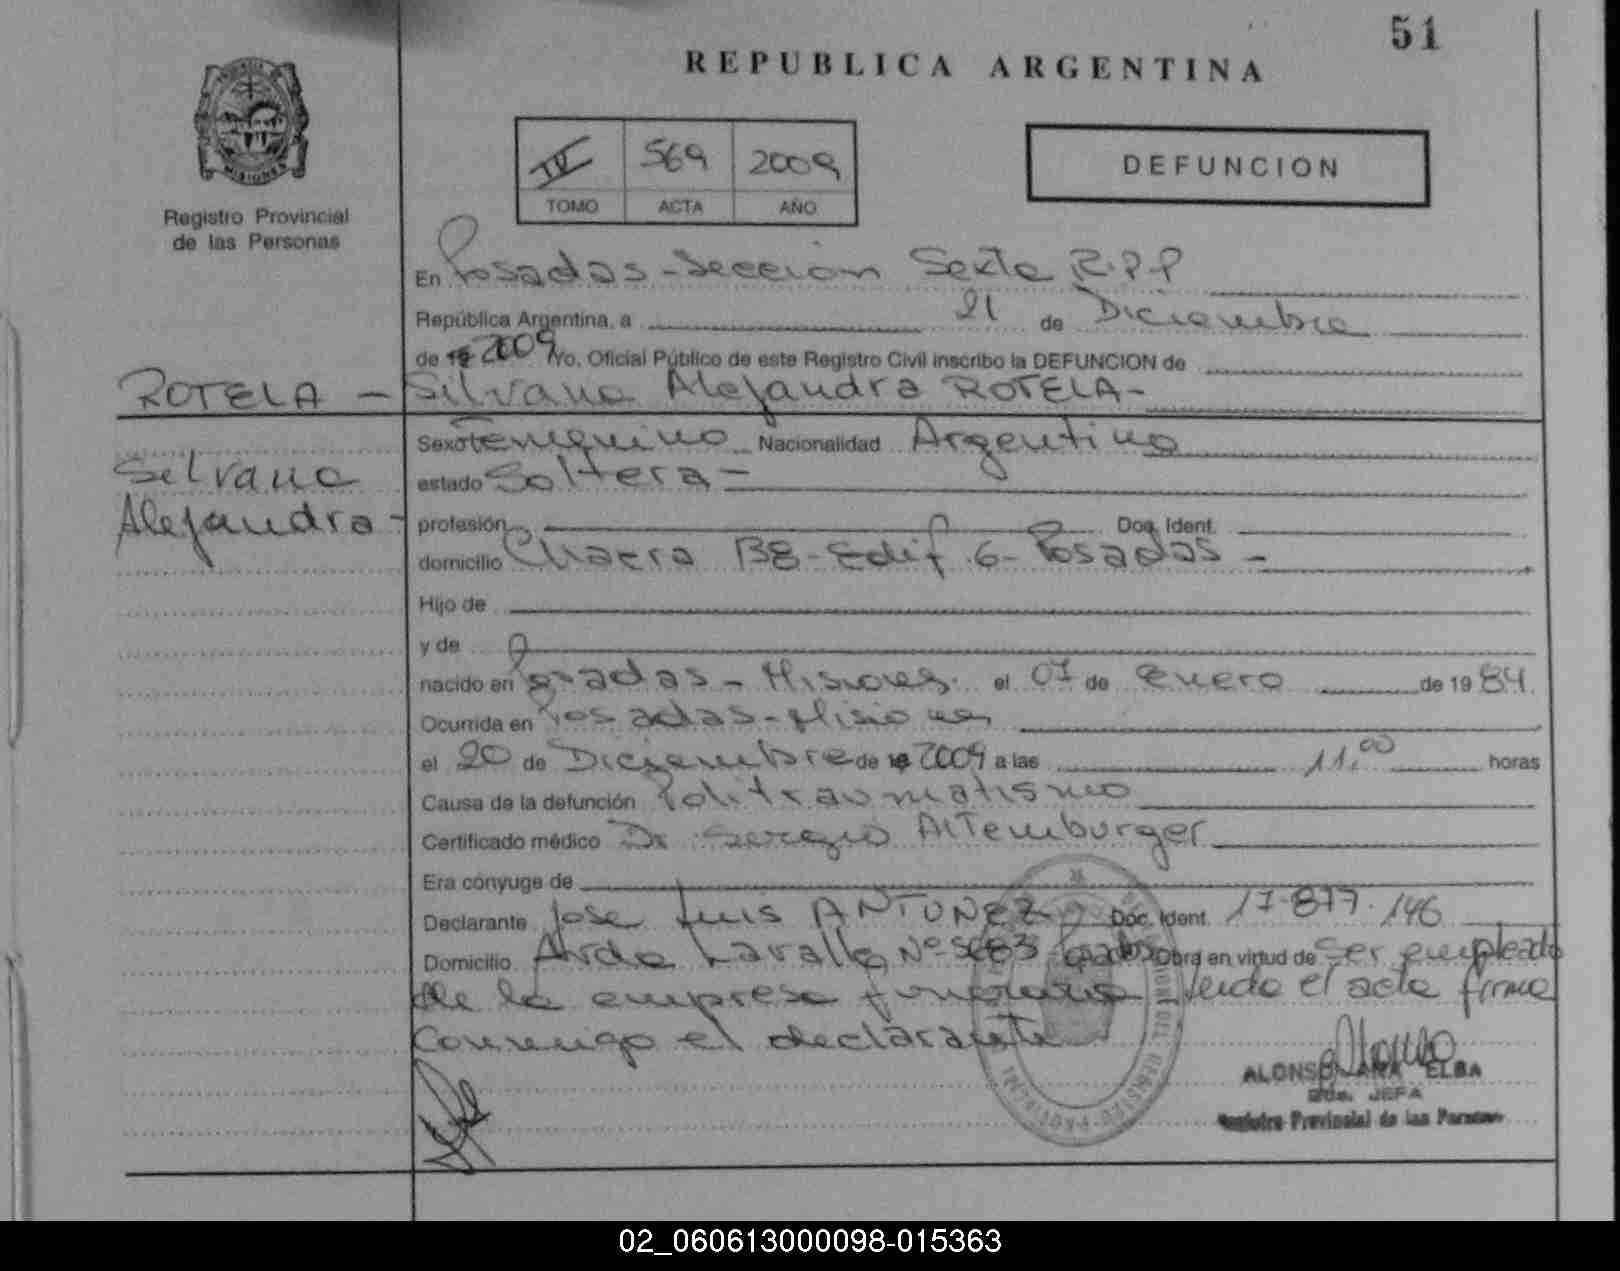 51
REPUBLICA ARGENTINA
MISIONES
Registro Provincial
de las Personas
IV 569 2009
TOMO ACTA AÑO
DEFUNCION
En Posadas-Sección Sexta R.P.P
República Argentina, a 21 de Diciembre
de 19 2009 Yo, Oficial Público de este Registro Civil inscribo la DEFUNCION de
ROTELA - Silvana Alejandra ROTELA-
Silvana
Alejandra-
Sexo Femenino Nacionalidad Argentina
estado Soltera-
profesión Doc. Ident.
domicilio Chacra Edif. 6- Posadas-
Hijo de
y de
nacido en Posadas- Misiones. el 07 de Enero de 1984.
Ocurrida en Posadas-Misiones
el 20 de Diciembre de 19 2009 a las 11,00 horas
Causa de la defunción Politraumatismo
Certificado médico Dr Sergio Altemburger
Era cónyuge de
Declarante Jose Luis ANTUNEZ Doc. Ident. 17.877.146
Domicilio Avda Lavalle Nº Obra en virtud de ser empleado
de la empresa funeraria leida el acta firma
conmigo el declarante
ALONSO ANA ELBA
JEFA
Registro Provincial de las Personas
02_060613000098-015363